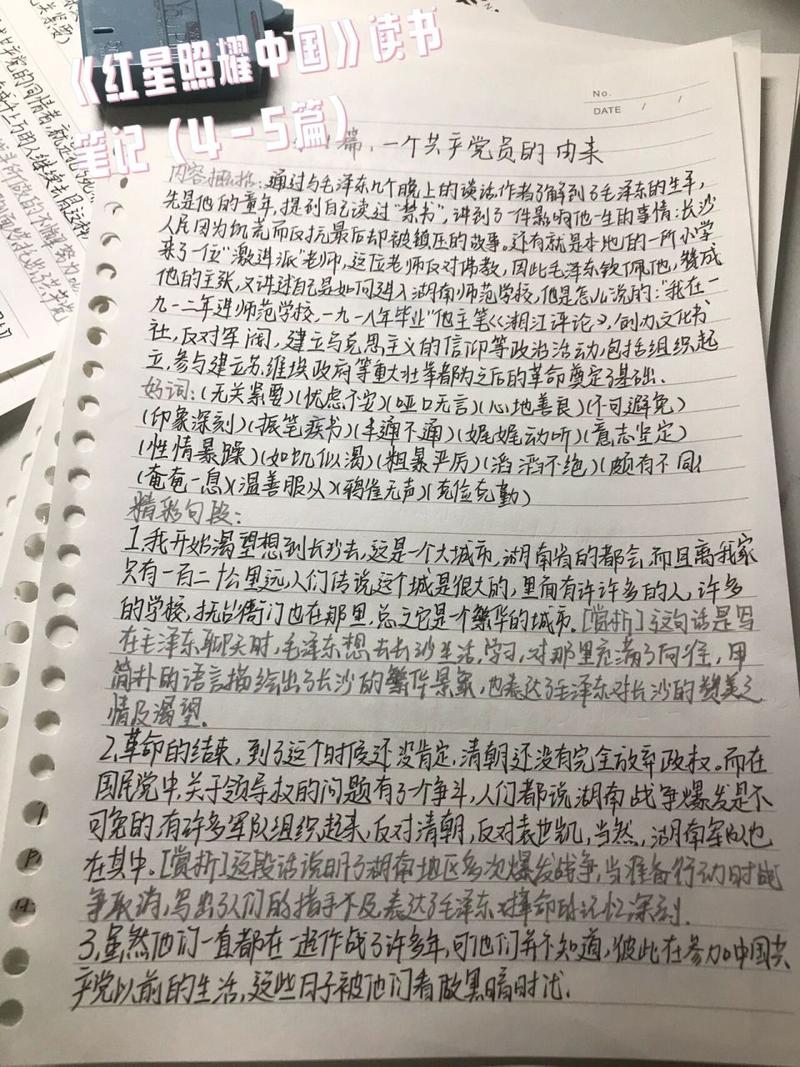 《红星照耀中国》读书
笔记(4-5篇)
No.
DATE / /
篇、一个共产党员的由来
内容概括:通过与毛泽东几个晚上的谈话,作者了解到了毛泽东的生平,
先是他的童年,提到自己读过“禁书”,讲到了一件影响他一生的事情:长沙
人民因为饥荒而反抗最后却被镇压的故事。还有就是本地的一所小学
来了一位“激进派”老师,这位老师反对佛教,因此毛泽东钦佩他,赞成
他的主张,又讲过自己是如何进入湖南师范学校,他是怎么说的:“我在一
九一二年进师范学校,一九一八年毕业”他主笔《湘江评论》,创办文化书
社,反对军阀,建立马克思主义的信仰等政治活动,包括组织起
立,参与建立苏维埃政府等重大壮举都为之后的革命奠定了基础.
好词:(无关紧要)(忧虑不安)(哑口无言)(心地善良)(不可避免)
(印象深刻)(振笔疾书)(半通不通)(娓娓动听)(意志坚定)
(性情暴躁)(如饥似渴)(粗暴严厉)(滔滔不绝)(颇有不同)
(奄奄一息)(温善服从)(鸦雀无声)(克俭克勤)
精彩句段:
1.我开始渴望想到长沙去,这是一个大城市,湖南省的都会,而且离我家
只有一百二十公里远,人们传说这个城是很大的,里面有许许多的人,许多
的学校,抚台衙门也在那里,总之它是个繁华的城市。[赏析]这句话是写
在毛泽东聊天时,毛泽东想去长沙生活,学习,对那里充满了向往,用
简朴的语言描绘出了长沙的繁华景象,也表达了毛泽东对长沙的赞美之
情及渴望.
2.革命的结束,到了这个时候还没肯定,清朝还没有完全放弃政权。而在
国民党中,关于领导权的问题有了个争斗,人们都说湖南战争爆发是不
可免的,有许多军队组织起来,反对清朝,反对袁世凯,当然,湖南军队也
在其中。[赏析]这段话说明了湖南地区多次爆发战争,当准备行动时战
争取消,写出了人们的措手不及,表达了毛泽东对革命的记忆深刻.
3.虽然他们一直都在一起作战了许多年,可他们并不知道,彼此在参加中国共
产党以前的生活,这些日子被他们看做黑暗时代.